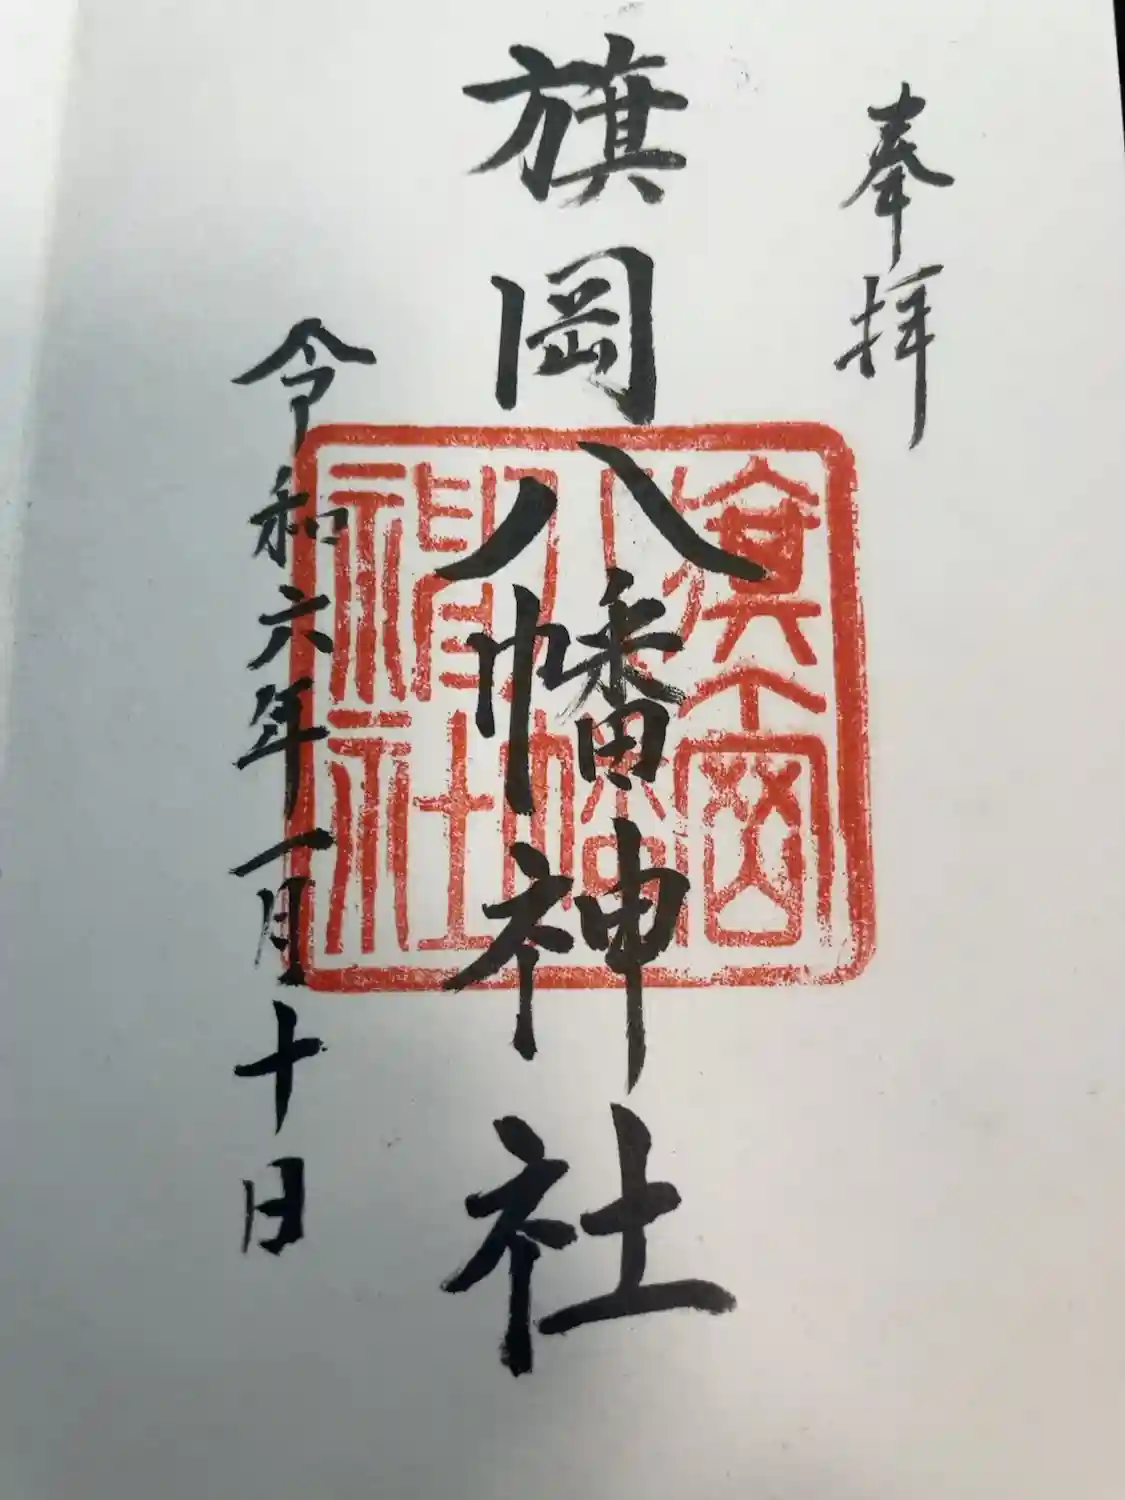 奉拝
旗岡八幡神社
旗岡
八幡
神社
令和六年一月十日